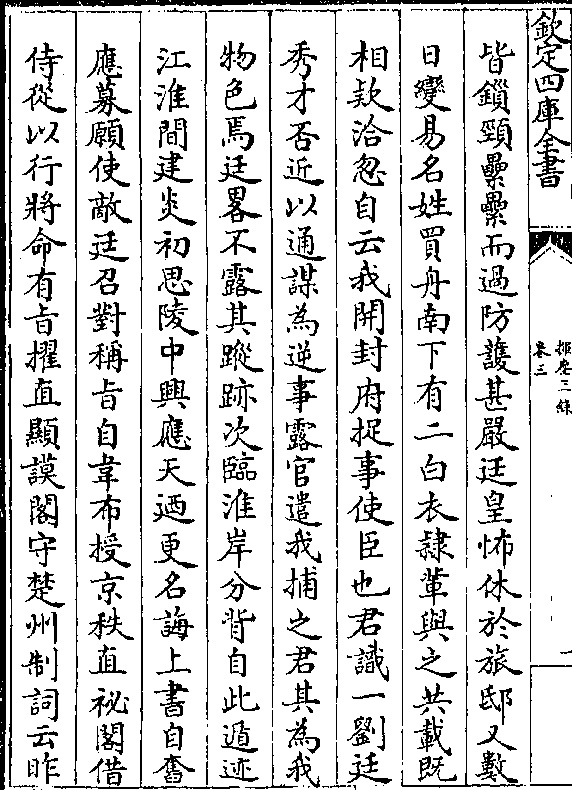 欽定四庫全書
揮麈三錄
卷三
皆鎖頸纍纍而過防護甚嚴廷皇怖休於旅邸又數
日變易名姓買舟南下有二白衣隸軰與之共載既
相款洽忽自云我開封府捉事使臣也君識一劉廷
秀才否近以通謀為逆事露官遣我捕之君其為我
物色焉廷畧不露其蹤跡次臨淮岸分背自此遁迹
江淮間建炎初思陵中興應天廼更名誨上書自奮
應募願使敵廷召對稱旨自韋布授京秩直祕閣借
侍從以行將命有旨擢直顯謨閣守楚州制詞云昨